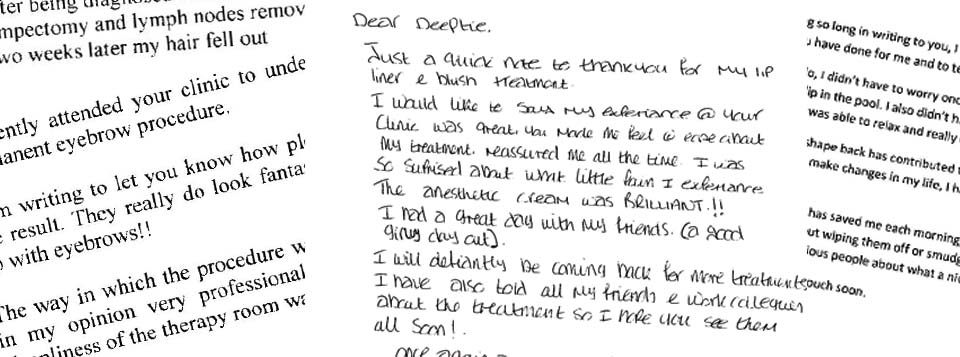 ter being diagnosed
mpectomy and lymph nodes remov
wo weeks later my hair fell out
ently attended your clinic to unde
anent eyebrow procedure.
n writing to let you know how pl
result. They really do look fanta
with eyebrows!!
The way in which the procedure w
in my opinion very professional
liness of the therapy room wa
Dear Deeptie.
Just a quick note to thankyou for my lip
liner & blush treatment.
I would like to say my experiance @ your
clinic was great, you made me feel @ ease about
my treatment. reassured me all the time. I was
so suprised about what little pain I experiance
The anesthetic cream was BRILLIANT.!!
I had a great day with my friends. (a good
girly day out).
I will defiantly be coming back for more treatments
I have also told all my friends & work collegues
about the treatment so I hope you see them
all soon!.
once again
g so long in writing to you, I
have done for me and to te
o, I didn't have to worry onc
ip in the pool. I also didn't h
was able to relax and really
shape back has contributed
make changes in my life, I h
has saved me each morning
ut wiping them off or smudg
ious people about what a ni
ouch soon.